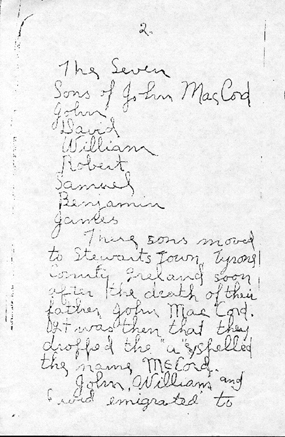 2.
The Seven
Sons of John MacCord
John
David
William
Robert
Samuel
Benjamin
James
These sons moved
to Stewarts Town, Tyrone
County Ireland soon
after the death of their
father John Mac Cord.
It was then that they
dropped the "a" & spelled
the name McCord.
John, William, and
David emigrated to